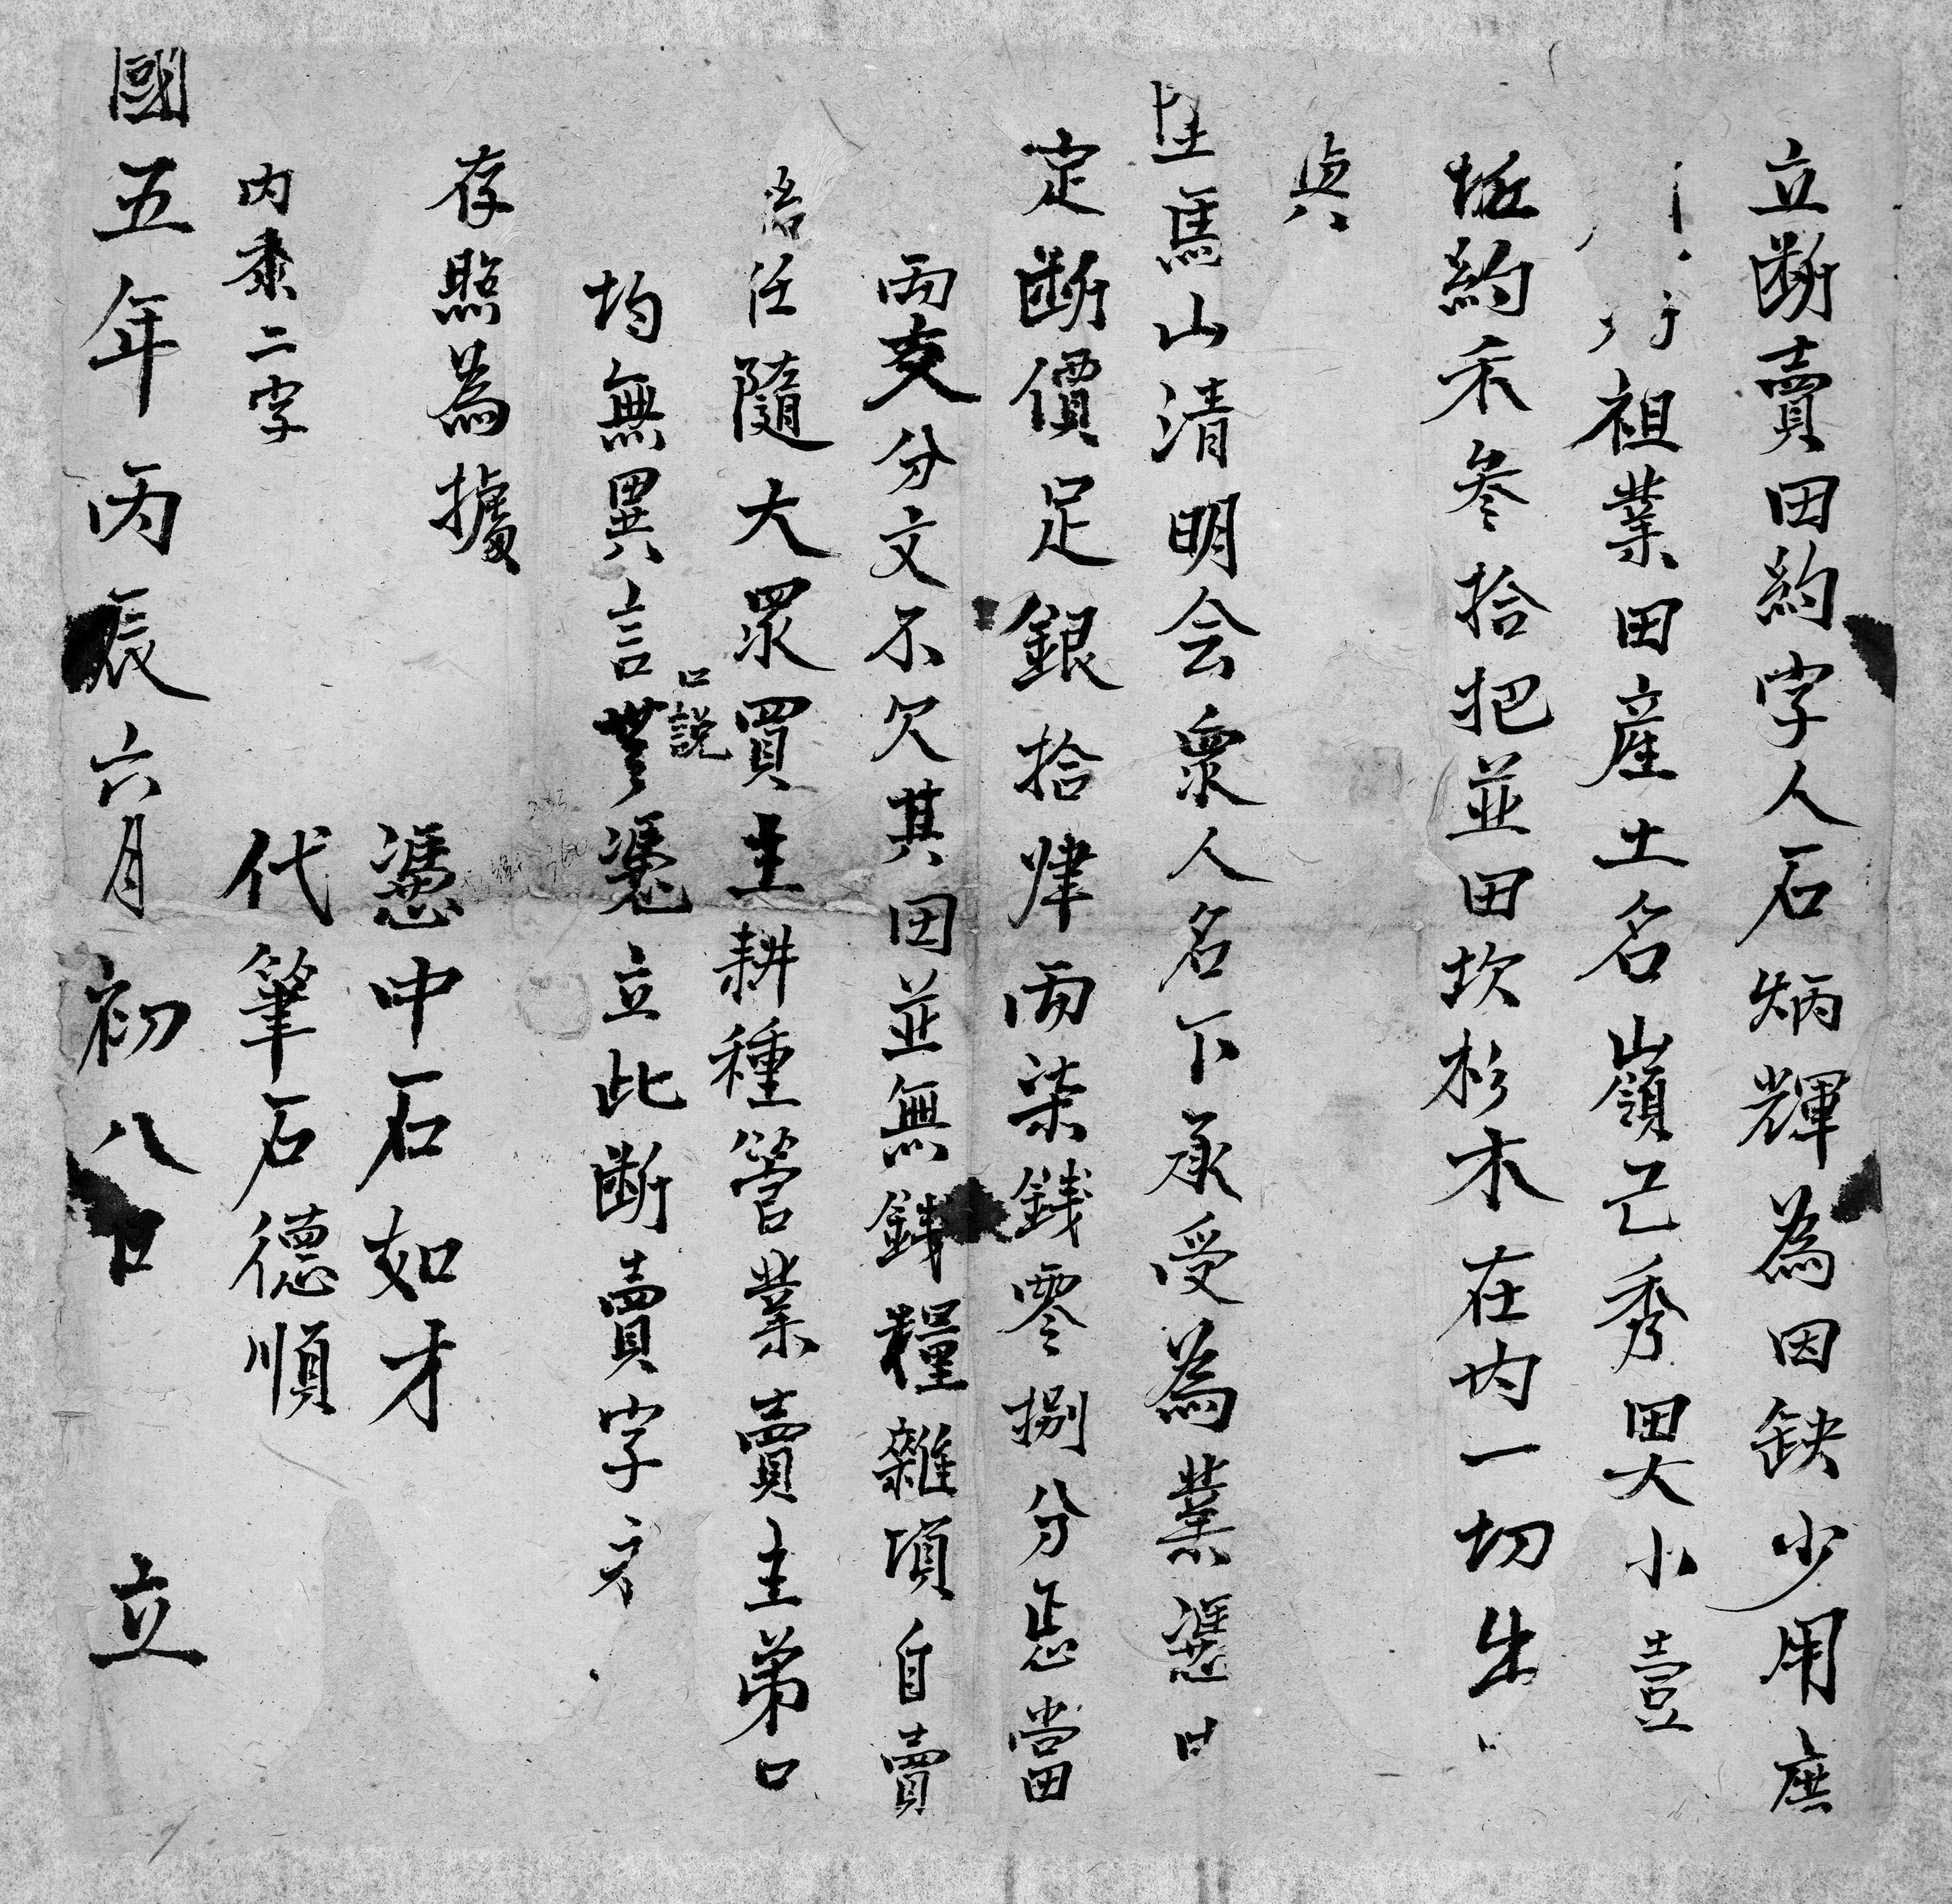 立断賣田約字人石炳輝為因缺少用庶
祖業田產土名山嶺己秀田大小壹
坵約禾叁拾把並田坎杉木在内一切出
與
馬山清明会衆人名下承受為業憑中
定断價足銀拾肆両柒銭零捌分悉當
両交分文不欠其田並無銭糧雜項自賣
任隨大眾買主耕種管業賣主弟口
均無異言口説無憑立此断賣字
存照為據
憑中石如才
内添二字
代筆石德順
國五年丙辰六月初八日 立